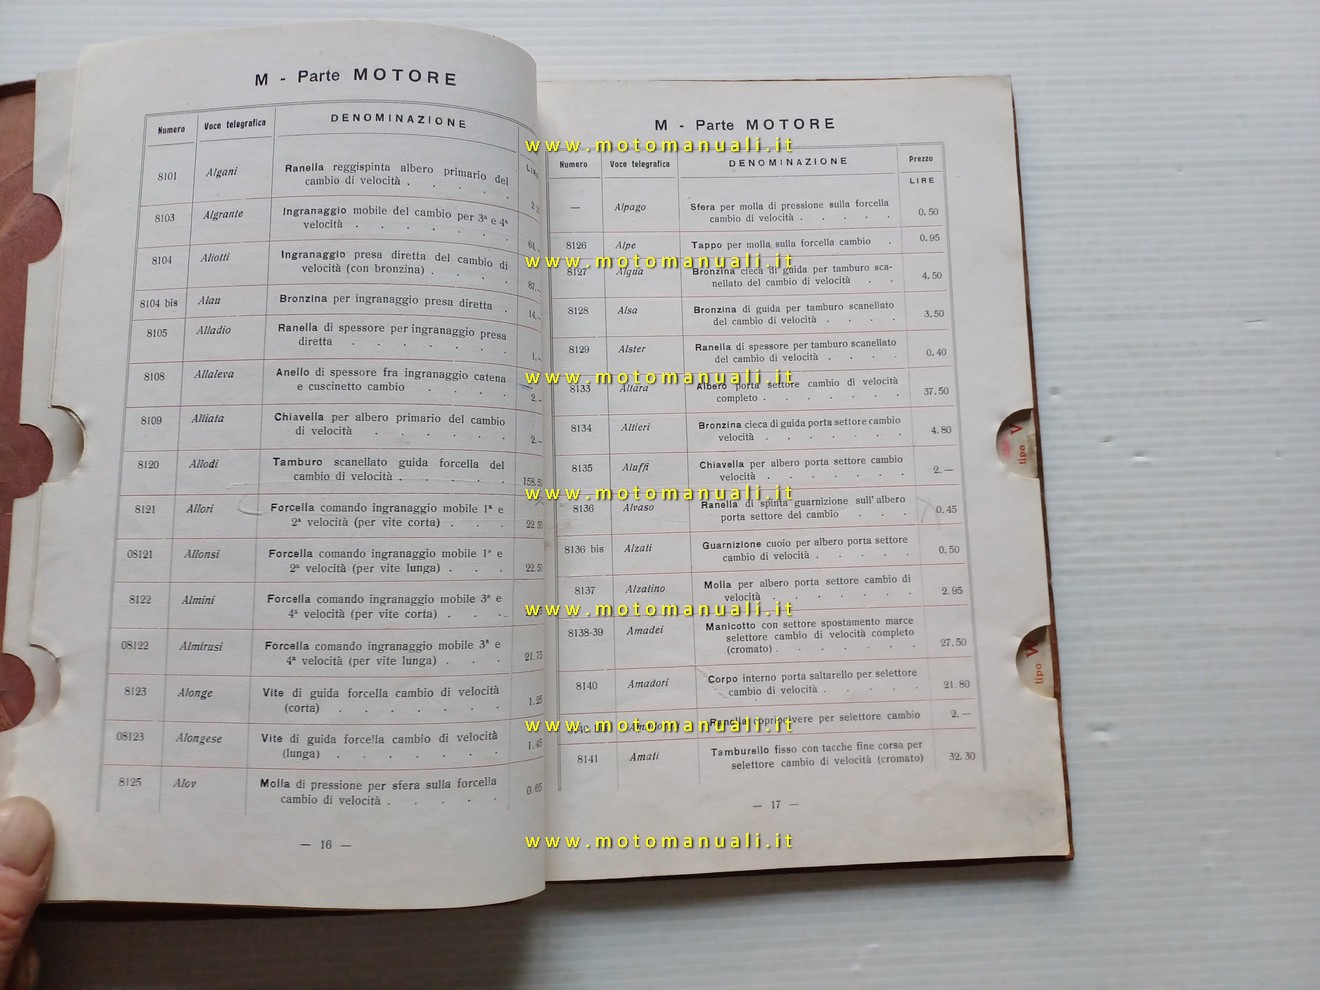 M - Parte MOTORE
Numero Voce telegrafica DENOMINAZIONE
LIRE
8101 Algani Ranella reggispinta albero primario del
cambio di velocità . . . . .
8103 Algrante Ingranaggio mobile del cambio per 3ª e 4ª
velocità . . . . . . . 64.-
8104 Aliotti Ingranaggio presa diretta del cambio di
velocità (con bronzina) . . . . 87.-
8104 bis Alau Bronzina per ingranaggio presa diretta . 14.-
8105 Alladio Ranella di spessore per ingranaggio presa
diretta . . . . . . . 1.-
8108 Allaleva Anello di spessore fra ingranaggio catena
e cuscinetto cambio . . . . 2.-
8109 Alliata Chiavella per albero primario del cambio
di velocità . . . . . . 2.-
8120 Allodi Tamburo scanellato guida forcella del
cambio di velocità . . . . . 158.50
8121 Allori Forcella comando ingranaggio mobile 1ª e
2ª velocità (per vite corta) . . . 22.50
08121 Allonsi Forcella comando ingranaggio mobile 1ª e
2ª velocità (per vite lunga) . . . 22.50
8122 Almini Forcella comando ingranaggio mobile 3ª e
4ª velocità (per vite corta) . . .
08122 Almirusi Forcella comando ingranaggio mobile 3ª e
4ª velocità (per vite lunga) . . . 21.75
8123 Alonge Vite di guida forcella cambio di velocità
(corta) . . . . . . . 1.25
08123 Alongese Vite di guida forcella cambio di velocità
(lunga) . . . . . . . 1.45
8125 Alov Molla di pressione per sfera sulla forcella
cambio di velocità . . . . . 0.65
— 16 —
M - Parte MOTORE
Numero Voce telegrafica DENOMINAZIONE Prezzo
LIRE
— Alpago Sfera per molla di pressione sulla forcella
cambio di velocità . . . . . 0.50
8126 Alpe Tappo per molla sulla forcella cambio . 0.95
8127 Algua Bronzina cieca di guida per tamburo sca-
nellato del cambio di velocità . . 4.50
8128 Alsa Bronzina di guida per tamburo scanellato
del cambio di velocità . . . . 3.50
8129 Alster Ranella di spessore per tamburo scanellato
del cambio di velocità . . . . 0.40
8133 Altara Albero porta settore cambio di velocità
completo . . . . . . . 37.50
8134 Altieri Bronzina cieca di guida porta settore cambio
velocità . . . . . . . 4.80
8135 Aluffi Chiavella per albero porta settore cambio
velocità . . . . . . . 2.—
8136 Alvaso Ranella di spinta guarnizione sull'albero
porta settore del cambio . . . 0.45
8136 bis Alzati Guarnizione cuoio per albero porta settore
cambio di velocità . . . . . 0.50
8137 Alzatino Molla per albero porta settore cambio di
velocità . . . . . . . 2.95
8138-39 Amadei Manicotto con settore spostamento marce
selettore cambio di velocità completo
(cromato) . . . . . . . 27.50
8140 Amadori Corpo interno porta saltarello per selettore
cambio di velocità . . . . . 21.80
Ranella copripolvere per selettore cambio 2.—
8141 Amati Tamburello fisso con tacche fine corsa per
selettore cambio di velocità (cromato) 32.30
— 17 —
tipo V
tipo W
www.motomanuali.it
www.motomanuali.it
www.motomanuali.it
www.motomanuali.it
www.motomanuali.it
www.motomanuali.it
www.motomanuali.it